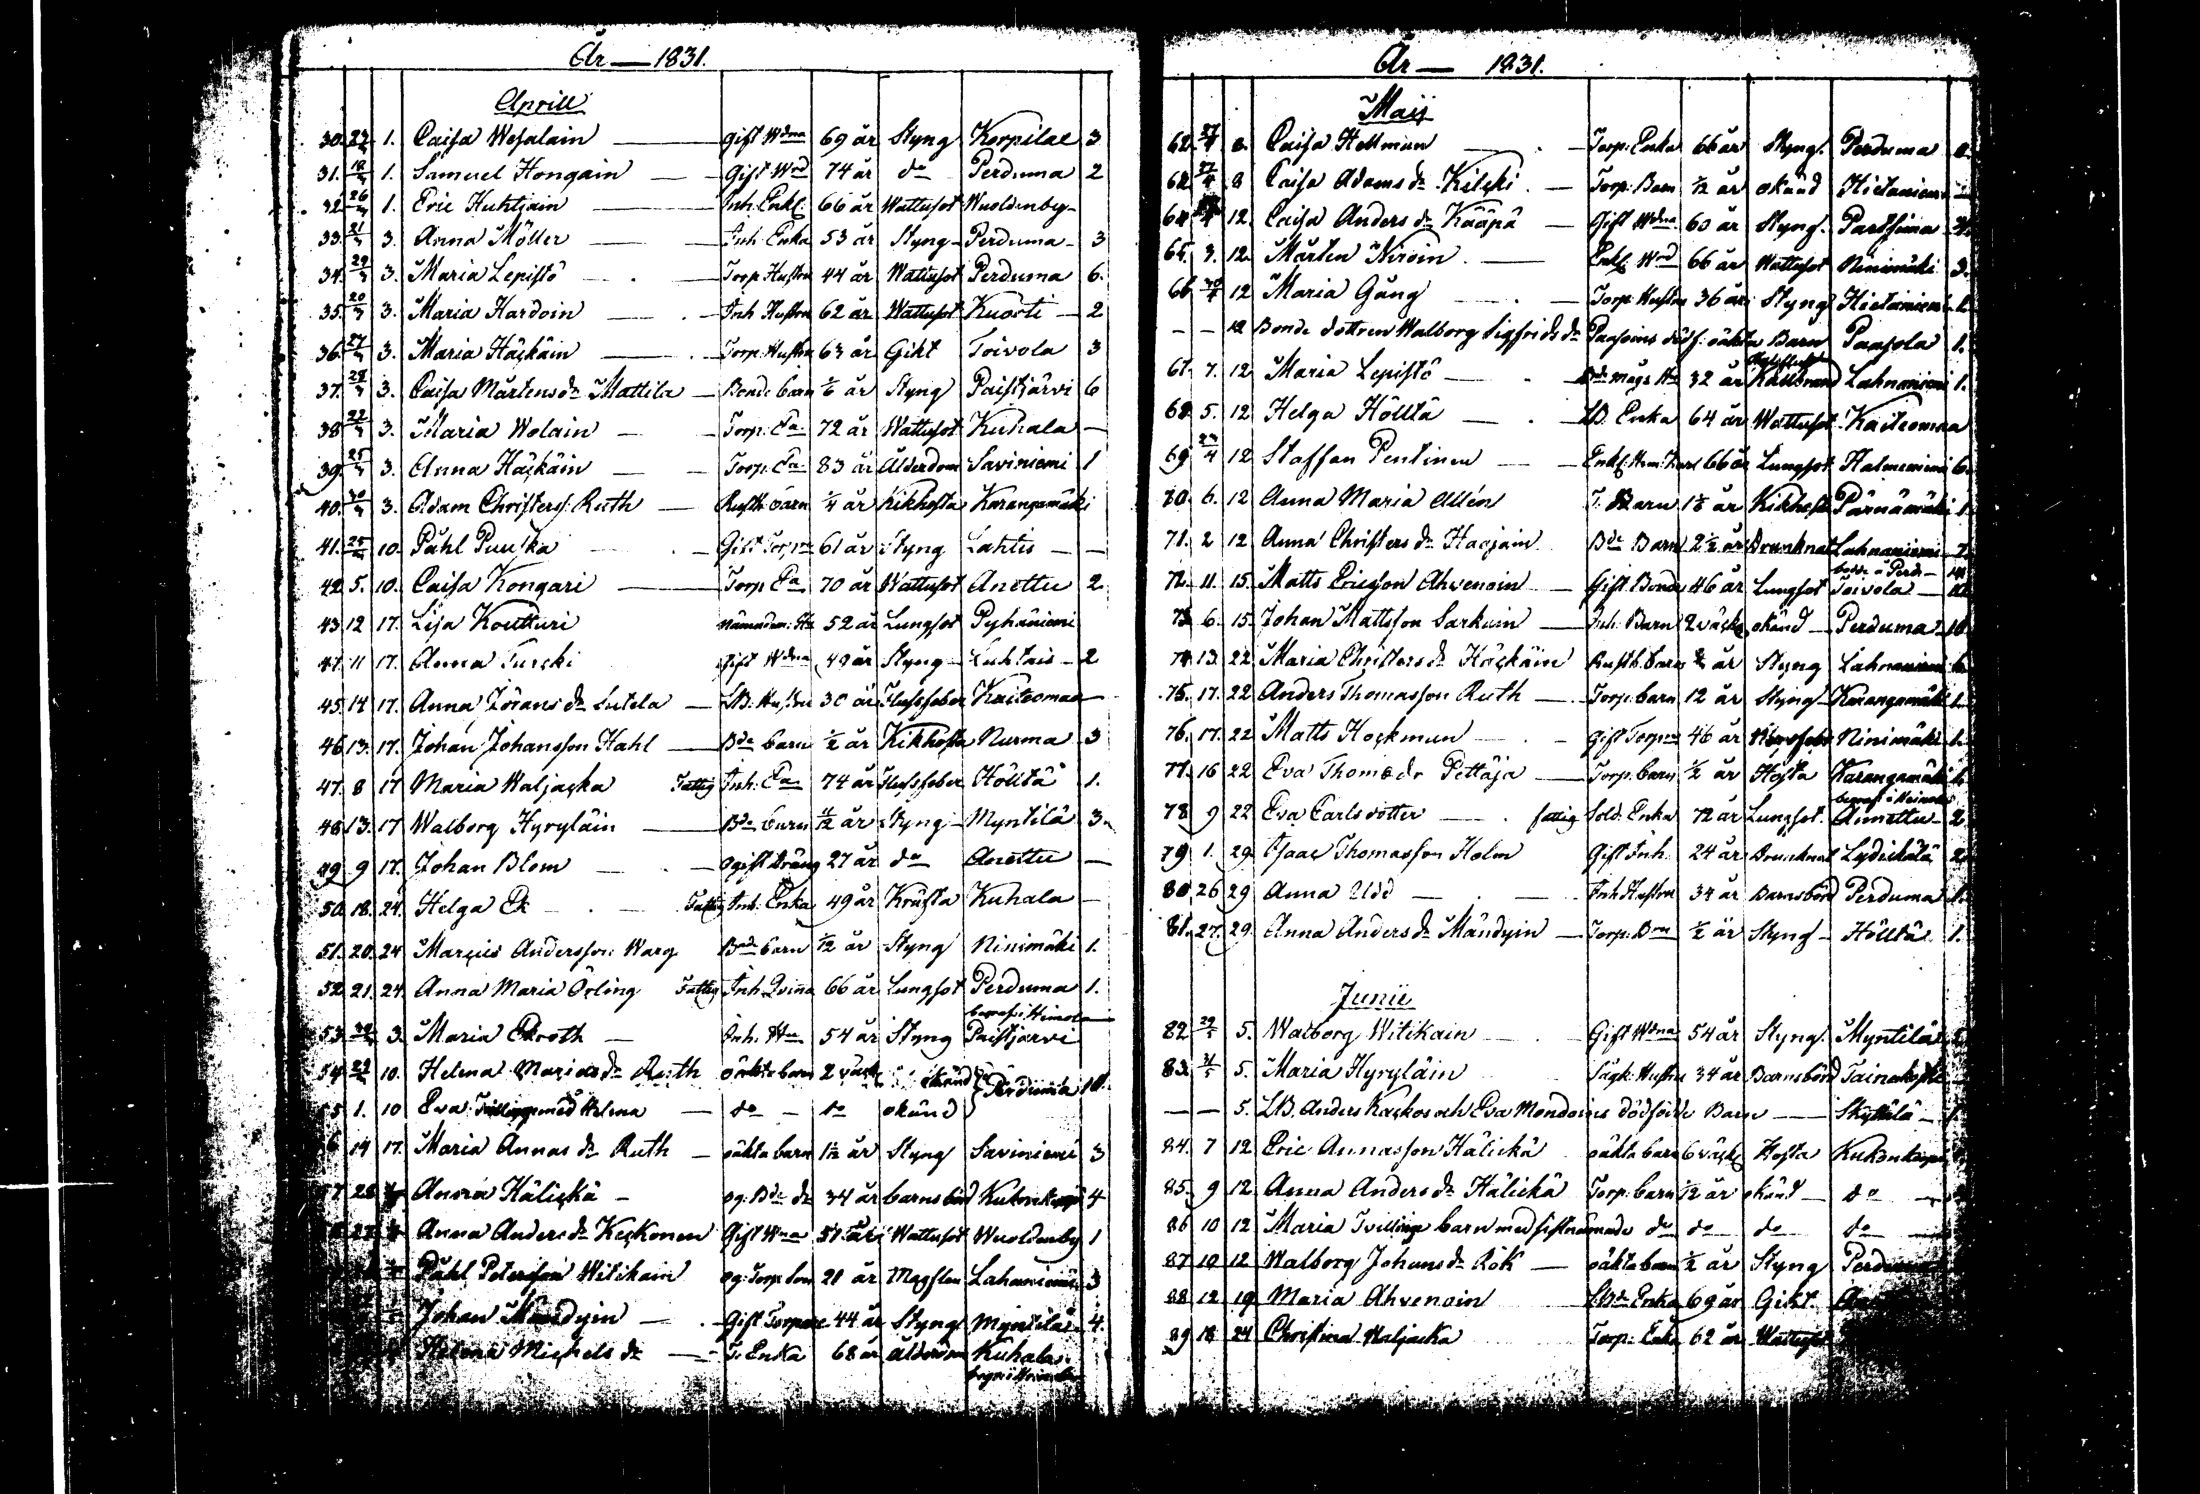 År — 1831.
Aprill
30. 23/3 1. Caisa Wesalain — Gift Wdna 69 år Styng Korpilae 3
31. 18/3 1. Samuel Hongain — Gift Wrd 74 år do Perduma 2
32. 26/3 1. Eric Huhtiain — Inh. Enkl. 66 år Wattusot Wuoldenby —
33. 21/3 3. Anna Möller — Inh. Enka 53 år Styng Perduma 3
34. 29/3 3. Maria Lepistö — Torp. Hustru 44 år Wattusot Perduma 6.
35. 20/3 3. Maria Hardoin — Inh Hustru 62 år Wattusot Kuorti — 2
36. 27/3 3. Maria Häckäin — Torp. Hustru 63 år Gikt Toivola 3
37. 28/3 3. Caisa Mårtensdr Mattila — Bonde barn år Styng Paistjärvi 6
38 22/3 3. Maria Wolain — Torp. Ea. 72 år Wattusot Kuhala —
39. 25/3 3. Anna Häckäin — Torp. Ea. 83 år Ålderdom Saviniemi 1
40. 30/3 3. Adam Christerss. Ruth — Rusth. barn 1/4 år Kikhosta Karangamäki
41. 25/3 10. Påhl Puuska — Gift Torpre 61 år Styng Lahtis — —
42 5. 10. Caisa Kongari — Torp Ea 70 år Wattusot Anettu 2
43. 12 17. Lisa Koutturi Nämndem: Ha 52 år Lungsot Pyhäniemi
44. 11 17. Anna Turcki Gift Wdna 49 år Styng Luhtais — 2
45. 14 17. Anna Jöransdr Lutela — LB. Hustru 30 år Flussfeber Kaiteomaa —
46. 13. 17. Johan Johansson Hahl — Bde barn 1/2 år Kikhosta Nurma 3
47. 8 17 Maria Waljacka Fattig Inh. Ea 74 år Flussfeber Hölltä 1.
48 13. 17 Walborg Hyryläin — Bde barn 11/12 år Styng Myntilä 3
49 9 17. Johan Blom — ogift dräng 27 år do Anettu —
50. 18. 24. Helga Ek — Fattig Inh. Enka 49 år Kräfta Kuhala —
51. 20. 24 Marcus Andersson Warg Bde barn 1/12 år Styng Ninimäki 1.
52. 21. 24. Anna Maria Örling Fattig Inh. Qvinna 66 år Lungsot Perduma 1.
53. 3. Maria Ekroth — Inh. Ha 54 år Styng Paistjärvi
54 10. Helena Mariasdr Ruth oäkta barn 2 veck okänd Perduma
55 1. 10 Eva Tvilling med Helena — do — do okänd
6 14 17. Maria Annasdr Ruth — oäkta barn år Styng Saviniemi 3
28 Anna Hälickä — og: Bde dr 34 år barnsbörd 4
Anna Andersdr Keckonen Gift Wdna år Wattusot Wuoldenby 1
Påhl Petersson Witikain og: Torp. Son 21 år Messlen Lahaniemi 3
Johan Mändyin — Gift Torpare 44 år Styng Myntilä 4
Helena Michelsdr — T. Enka 68 år Ålderdom Kuhala
År — 1831.
Maij
62. 27/4 8. Caisa Hellman — Torp. Enka 66 år Styng. Perduma
27/4 8 Caisa Adamsdr Kilcki — Torp. Barn 1/12 år okänd Hietaniemi
64 12. Caisa Andersdr Kääpä — Gift Wdna 60 år Styng. Partsima
65. 3. 12. Mårten Niroin — Enkl. Wrd 66 år Wattusot Ninimäki 3.
66 30/4 12 Maria Gång — Torp. Hustru 36 år Styng Hietaniemi 1.
— — 12 Bonde dottren Walborg Sigfridsdr Paasoins dödf: oäkta Barn Paasola 1.
67. 7. 12 Maria Lepistö — Bde mågs Ha 32 år Kallbrand Lahnaniemi 1.
68. 5. 12 Helga Hölltä — LB. Enka 64 år Wattusot Kaiteomaa
69 12 Staffan Pentinen — 66 år Lungsot Halmeniemi 6.
70. 6. 12 Anna Maria Allén T. Barn 1 1/2 år Kikhosta Pärnämäki 1.
71. 2 12 Anna Christersdr Haajain Bde Barn 2 1/2 år Drunknat Lahnaniemi
72. 11. 15. Matts Ericsson Ahvenoin — Gift Bonde 46 år Lungsot Toivola —
73. 6. 15. Johan Mattsson Sarkain — Inh. Barn 2 väck okänd — Perduma
74. 13. 22 Maria Christersdr Häckäin Rusth. barn år Styng Lahnaniemi
75. 17. 22 Anders Thomasson Ruth — Torp. barn 12 år Styng Karangamäki 1.
76. 17. 22 Matts Hockman — Gift Torpre 46 år Nervfeber Ninimäki 1.
77. 16 22 Eva Thomædr Pettäjä — Torp. barn 1/2 år Hosta Karangamäki
78 9 22 Eva Carlsdotter — fattig Sold. Enka 72 år Lungsot. Annettu 2
79 1. 29. Isaac Thomasson Holm Gift Inh. 24 år Drunknat Lydickälä 2
80 26 29 Anna Udd — Inh Hustru 34 år Barnsbörd Perduma 1.
81. 27. 29. Anna Andersdr Mändyin — Torp. Brn 1/2 år Styng — Hölltä 1.
Junii
82 29/5 5. Walborg Witikain — Gift Wdna 54 år Styng. Myntilä
83. 31/5 5. Maria Hyryläin Sågk. Hustru 34 år Barnsbörd
— — 5. LB. Anders Kackos och Eva Mondoins dödfödde Barn — Skyttälä — 1.
84. 7 12 Eric Annasson Hälickä oäkta barn 6 väck Hosta
85. 9 12 Anna Andersdr Hälickä Torp. barn 1/2 år okänd — do —
86 10 12 Maria Tvilling barn med sistnämnde do do do do
87 10 12 Walborg Johansdr Rök — oäkta barn 1/2 år Styng Perduma
88 12 19 Maria Ahvenoin LBde Enka 69 år Gikt
89 18 24 Christina Waljacka Torp. Enka 62 år Wattusot